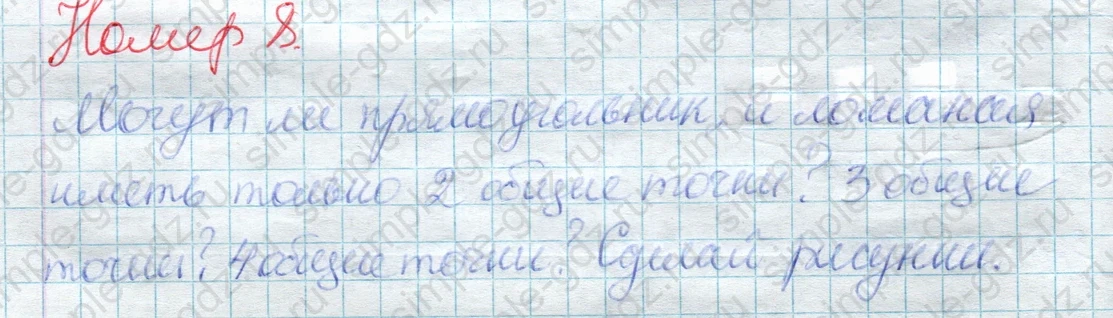 Номер 8.
Могут ли прямоугольник и ломаная
иметь только 2 общие точки? 3 общие
точки? 4 общие точки? Сделай рисунки.